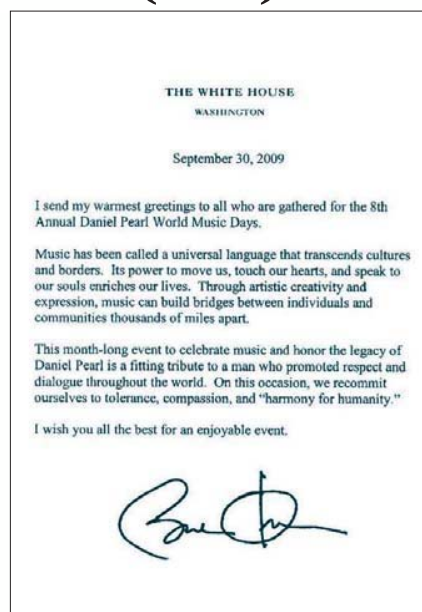 THE WHITE HOUSE
WASHINGTON
September 30, 2009
I send my warmest greetings to all who are gathered for the 8th
Annual Daniel Pearl World Music Days.
Music has been called a universal language that transcends cultures
and borders. Its power to move us, touch our hearts, and speak to
our souls enriches our lives. Through artistic creativity and
expression, music can build bridges between individuals and
communities thousands of miles apart.
This month-long event to celebrate music and honor the legacy of
Daniel Pearl is a fitting tribute to a man who promoted respect and
dialogue throughout the world. On this occasion, we recommit
ourselves to tolerance, compassion, and “harmony for humanity.”
I wish you all the best for an enjoyable event.